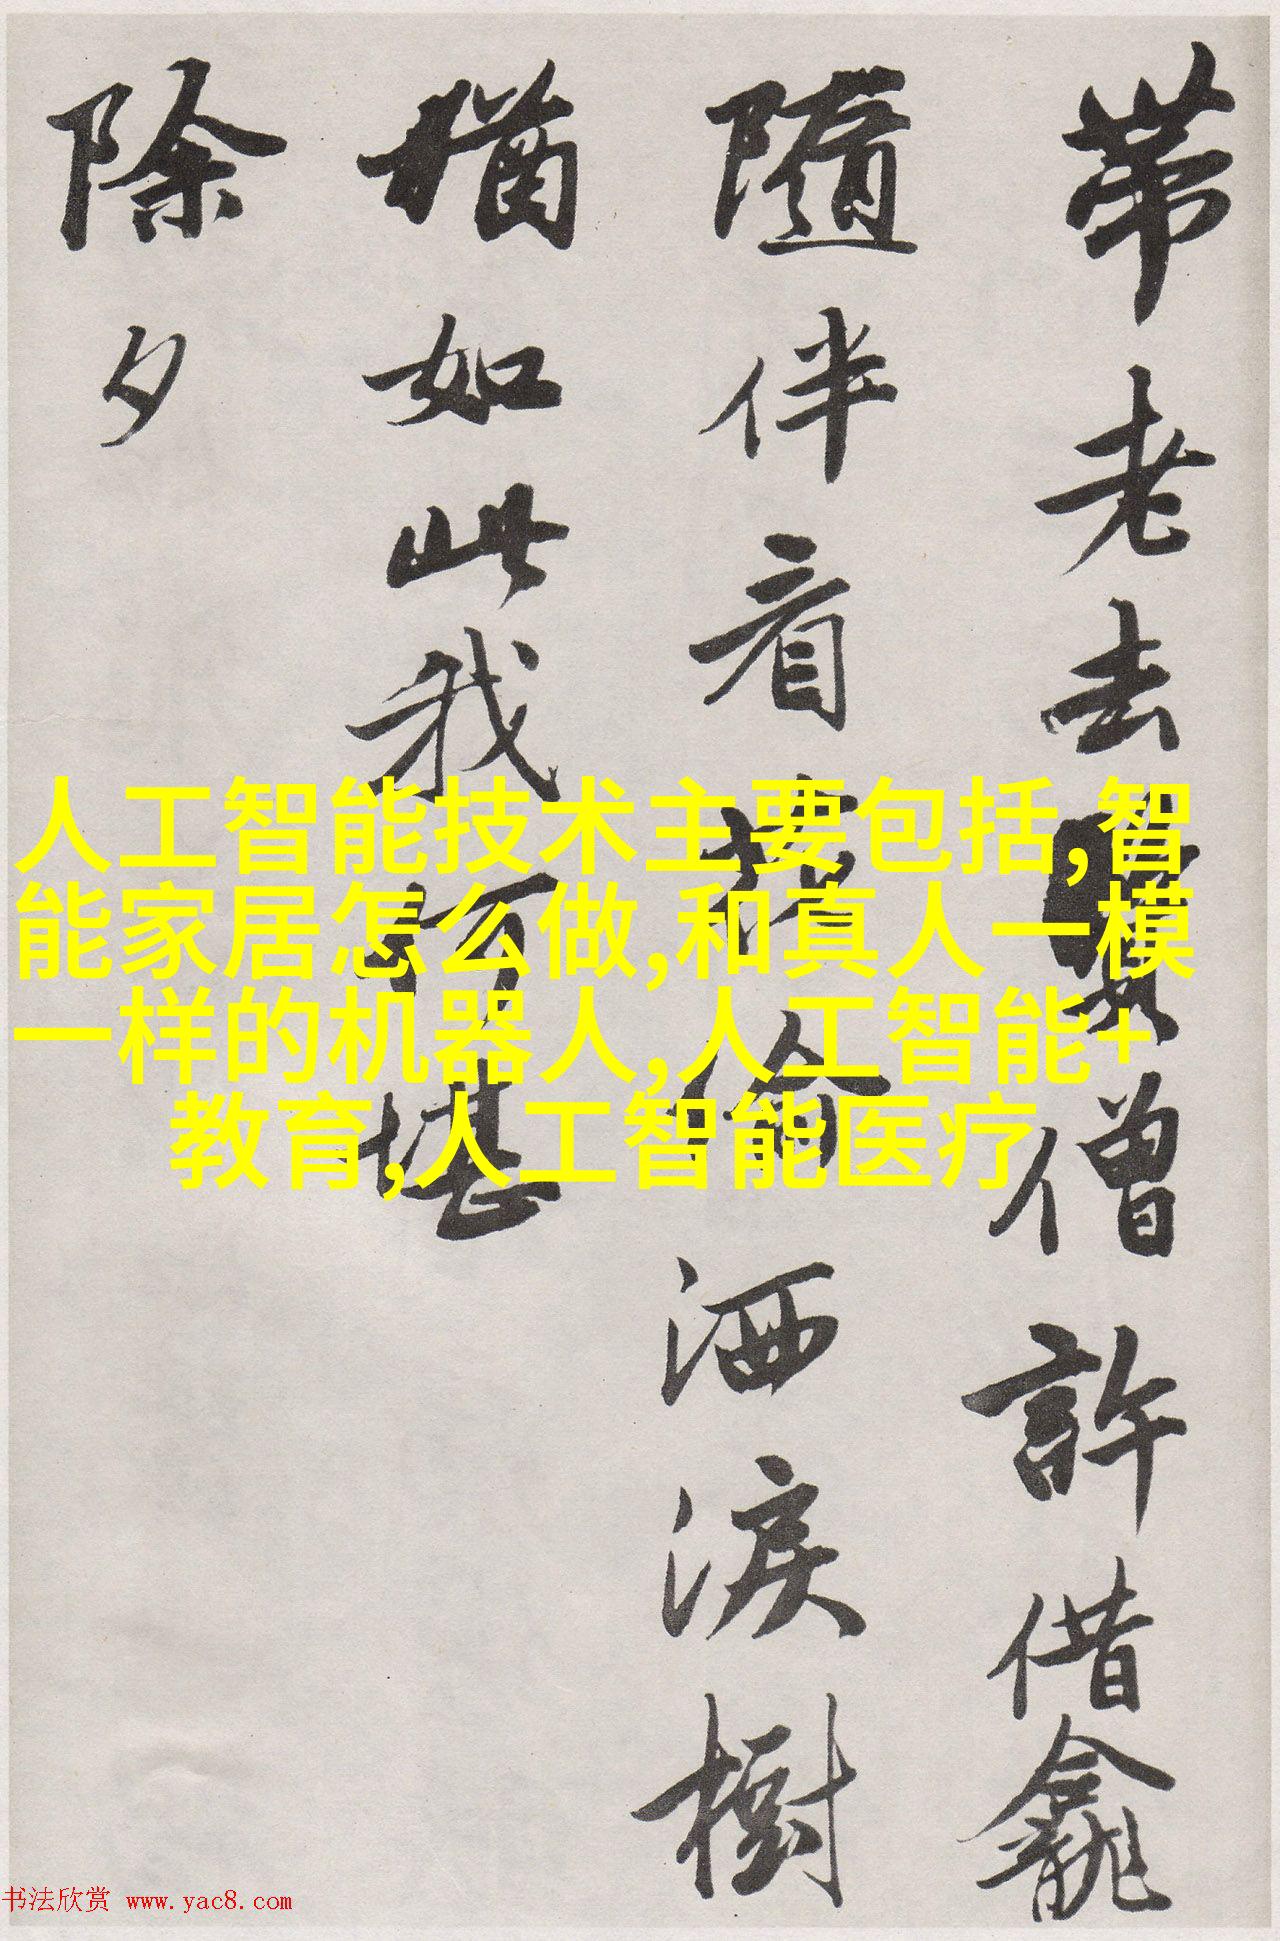 帶老去僧許借龕
隨伴看偷洒淚樹
猶如此我何堪
除夕
人工智能技术主要包括,智
能家居怎么做,和真人一模
一样的机器人,人工智能+
教育,人工智能医疗
书法欣赏 www.yac8.com